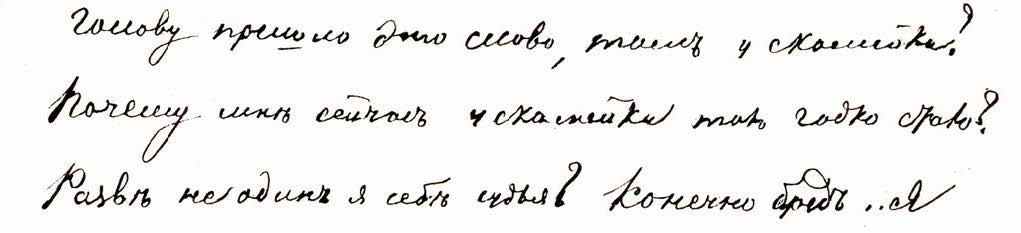 голову пришло это слово, тамъ у скамейки?
Почему мнѣ сейчасъ у скамейки такъ гадко стало?
Развѣ не одинъ я себѣ судья? Конечно бредъ... Я